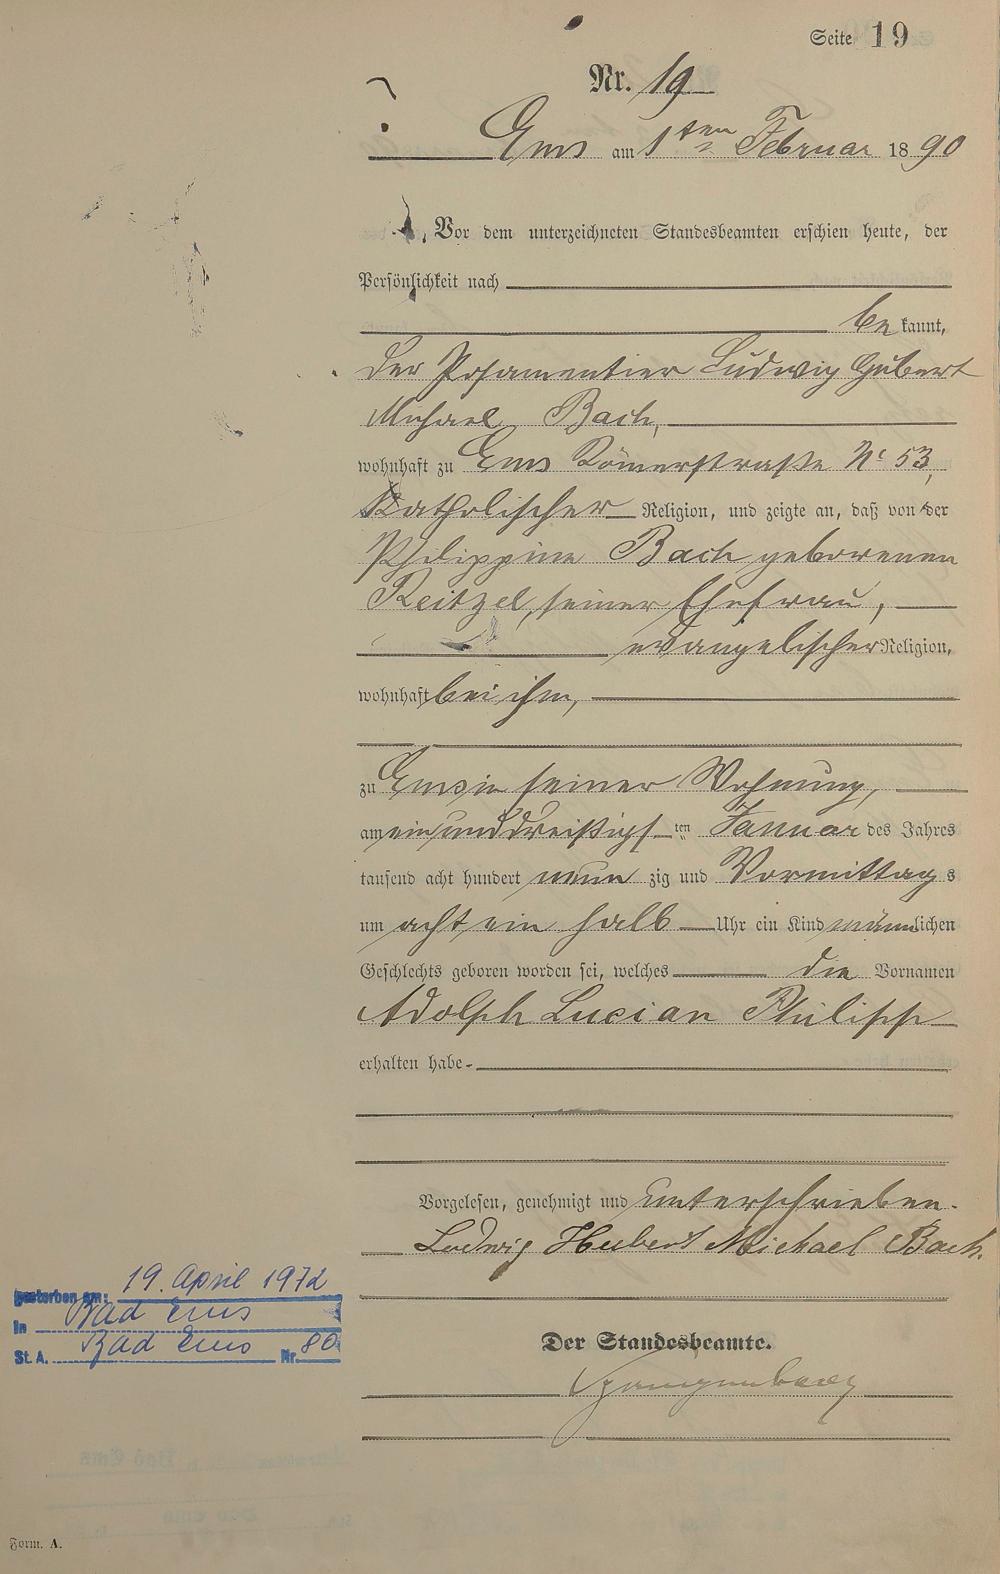 Seite 19
Nr. 19
Ems am 1ten Februar 1890
Vor dem unterzeichneten Standesbeamten erschien heute, der
Persönlichkeit nach
bekannt,
der Posamentier Ludwig Hubert
Michael Bach,
wohnhaft zu Ems Römerstraße No 53,
Katholischer Religion, und zeigte an, daß von der
Philippine Bach geborenen
Reitzel, seiner Ehefrau,
evangelischer Religion,
wohnhaft bei ihm,
zu Ems in seiner Wohnung,
am einunddreißigsten Januar des Jahres
tausend acht hundert neunzig und Vormittags
um acht ein halb Uhr ein Kind männlichen
Geschlechts geboren worden sei, welches die Vornamen
Adolph Lucian Philipp
erhalten habe.
Vorgelesen, genehmigt und unterschrieben.
Ludwig Hubert Michael Bach.
gestorben am: 19. April 1972
in Bad Ems
St. A. Bad Ems Nr. 80
Der Standesbeamte.
Form. A.